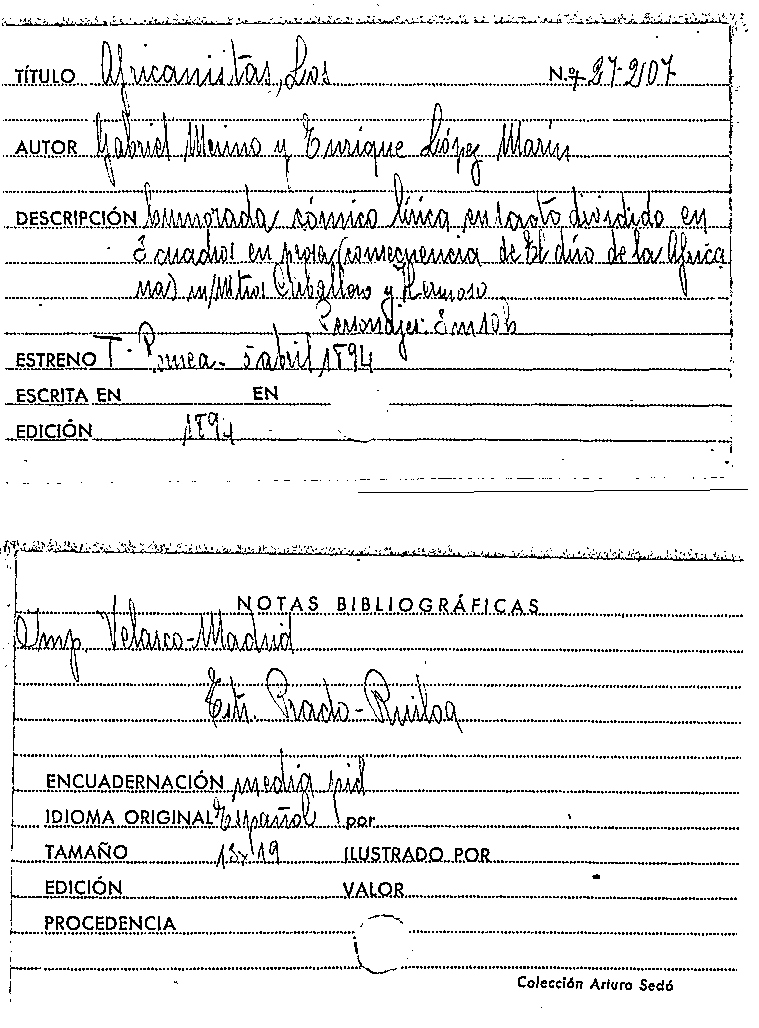 TÍTULO Africanistas, Los N.º 27-2107
AUTOR Gabriel Merino y Enrique López Marín
DESCRIPCIÓN humorada cómico lírica en 1 acto dividido en
3 cuadros en prosa (consecuencia de El dúo de la Africa
na) m/ Mtros Caballero y Hermoso
Personajes: 3m 10h
ESTRENO T. Romea - 5 abril 1894
ESCRITA EN EN
EDICIÓN 1894
NOTAS BIBLIOGRÁFICAS
Imp. Velasco - Madrid
Estr. Prado - Ruiloa
ENCUADERNACIÓN media piel
IDIOMA ORIGINAL Español por
TAMAÑO 13x19 ILUSTRADO POR
EDICIÓN VALOR
PROCEDENCIA
Colección Arturo Sedó